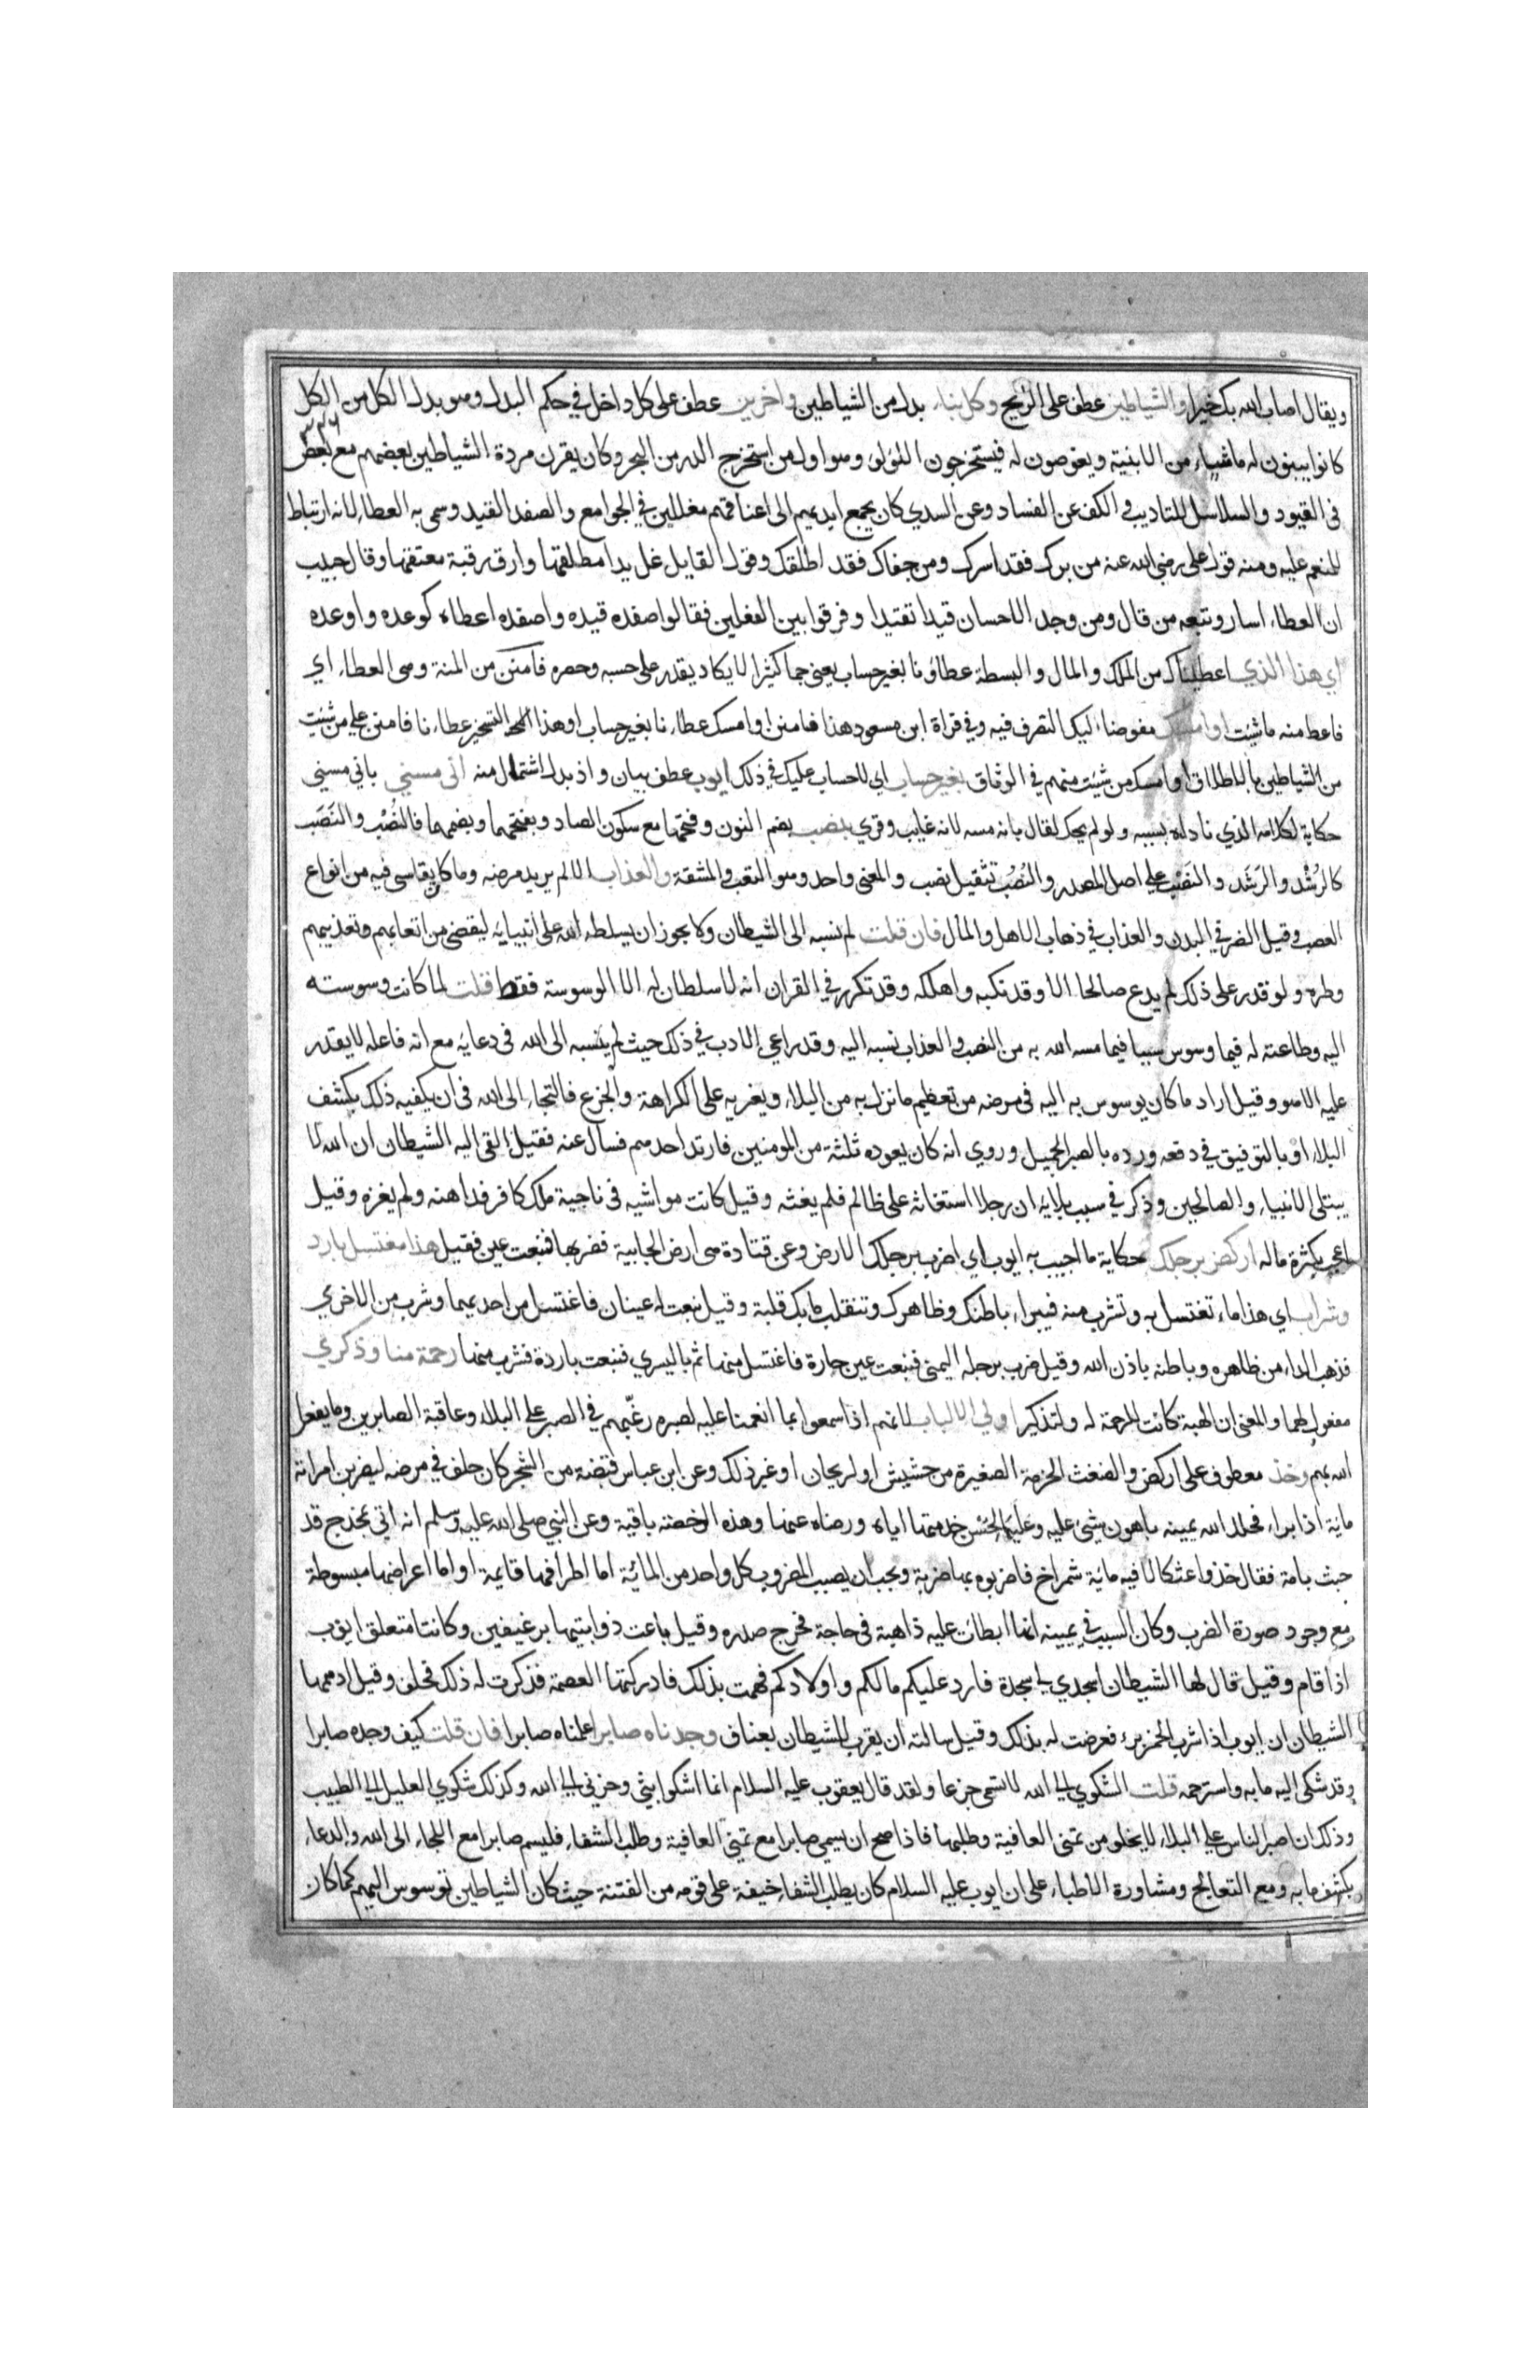 ويقال اصاب الله بك خيرا والشياطين عطف على الريح وكل بناء بدل من الشياطين واخرين عطف على كل داخل في حكم البدل وهو بدل الكل من الكل
كانوا يبنون له ما شاء من الابنية ويغوصون له فيستخرجون اللؤلؤ وهو اول من استخرج الدر من البحر وكان يقرن مردة الشياطين بعضهم مع بعض
في القيود والسلاسل للتاديب والكف عن الفساد وعن السدي كان يجمع ايديهم الى اعناقهم مغللين في الجوامع والصفد القيد وسمى به العطاء لانه ارتباط
للمنعم عليه ومنه قول على رضى الله عنه من برك فقد اسرك ومن جفاك فقد اطلقك وقول القايل غل يدا مطلقها وارق رقبة معتقها وقال حبيب
ان العطاء اسار وتبعه من قال ومن وجد الاحسان قيدا تقيدا وفرقوا بين الفعلين فقالوا صفده قيده واصفده اعطاه كوعده واوعده
اي هذا الذي اعطيناك من الملك والمال والبسطة عطاؤنا بغير حساب يعنى جما كثيرا لا يكاد يقدر على حسبه وحصره فامنن من المنة وهى العطاء اي
فاعط منه ما شيت او امسك مفوضا اليك التصرف فيه وفي قراة ابن مسعود هذا فامنن او امسك عطاءنا بغير حساب او هذا التسخير عطاءنا فامنن على من شيت
من الشياطين بالاطلاق او امسك من شيت منهم في الوثاق بغير حساب اي لا حساب عليك في ذلك ايوب عطف بيان واذ بدل اشتمال منه اني مسني باني مسني
حكاية لكلامه الذي ناداه بسببه ولو لم يحك لقال بانه مسه لانه غايب وقري بنصب بضم النون وفتحها مع سكون الصاد وبفتحهما وبضمهما فالنُصْب والنَصَب
كالرُشْد والرَشَد والنَصْب على اصل المصدر والنُصُب تثقيل نصب والمعنى واحد وهو التعب والمشقة والعذاب الالم يريد مرضه وما كان يقاسى فيه من انواع
الوصب وقيل الضر في البدن والعذاب في ذهاب الاهل والمال فان قلت لم نسبه الى الشيطان ولا يجوز ان يسلطه الله على انبيايه ليقضى من اتعابهم وتعذيبهم
وطره ولو قدر على ذلك لم يدع صالحا الا وقد نكبه واهلكه وقد تكرر في القران انه لا سلطان له الا الوسوسة فقط قلت لما كانت وسوسته
اليه وطاعته له فيما وسوس سببا فيما مسه الله به من النصب والعذاب نسبه اليه وقد راعى الادب في ذلك حيث لم ينسبه الى الله فى دعايه مع انه فاعله لا يقدر
عليه الا هو وقيل اراد ما كان يوسوس به اليه فى مرضه من تعظيم ما نزل به من البلاء ويغريه على الكراهة والجزع فالتجاء الى الله فى ان يكفيه ذلك بكشف
البلاء او بالتوفيق في دفعه ورده بالصبر الجميل وروي انه كان يعوده ثلثة من المومنين فارتد احدهم فسال عنه فقيل القى اليه الشيطان ان الله لا
يبتلى الانبياء والصالحين وذكر في سبب بلايه ان رجلا استغاثه على ظالم فلم يغثه وقيل كانت مواشيه فى ناحية ملك كافر فداهنه ولم يغزه وقيل
اعجب بكثرة ماله اركض برجلك حكاية ما اجيب به ايوب اي اضرب برجلك الارض وعن قتادة هى ارض الجابية فضربها فنبعت عين فقيل هذا مغتسل بارد
وشراب اي هذا ماء تغتسل به وتشرب منه فيبراء باطنك وظاهرك وتنقلب ما بك قلبة وقيل نبعت له عينان فاغتسل من احديهما وشرب من الاخري
فذهب الداء من ظاهره وباطنه باذن الله وقيل ضرب برجله اليمنى فنبعت عين حارة فاغتسل منها ثم باليسري فنبعت باردة فشرب منها رحمة منا وذكري
مفعول لهما والمعنى ان الهبة كانت للرحمة له ولتذكير اولي الالباب لانهم اذا سمعوا بما انعمنا عليه لصبره رغّبهم في الصبر على البلاء وعاقبة الصابرين وما يفعل
الله بهم وخذ معطوف على اركض والضغث الحزمة الصغيرة من حشيش او ريحان او غير ذلك وعن ابن عباس قبضة من الشجر كان حلف في مرضه ليضربن امراته
ماية اذا براء فحلل الله يمينه باهون شى عليه وعليها لحُسْن خدمتها اياه ورضاه عنها وهذه الرخصة باقية وعن النبي صلى الله عليه وسلم انه اتي بمخدج قد
خبث بامة فقال خذوا عثكالا فيه ماية شمراخ فاضربوه بها ضربة ويجب ان يصيب المضروب كل واحد من الماية اما اطرافها قايمة او اما اعراضها مبسوطة
مع وجود صورة الضرب وكان السبب في يمينه انها ابطات عليه ذاهبة فى حاجة فحرج صدره وقيل باعت ذوابتيها برغيفين وكانتا متعلق ايوب
اذا قام وقيل قال لها الشيطان اسجدي لي سجدة فارد عليكم مالكم واولادكم فهمت بذلك فادركتها العصمة فذكرت له ذلك فحلف وقيل اوهمها
الشيطان ان ايوب اذا شرب الخمر برء فعرضت له بذلك وقيل سالته ان يقرب للشيطان بعناق وجدناه صابرا علمناه صابرا فان قلت كيف وجده صابرا
وقد شكى اليه ما به واسترحمه قلت الشكوي الى الله لا تسمى جزعا ولقد قال يعقوب عليه السلام انما اشكوا بثى وحزنى الى الله وكذلك شكوي العليل الى الطبيب
وذلك ان اصبر الناس على البلاء لا يخلو من تمنى العافية وطلبها فاذا صح ان يسمى صابرا مع تمنى العافية وطلب الشفاء فليسم صابرا مع اللجاء الى الله والدعاء
بكشف ما به ومع التعالج ومشاورة الاطباء على ان ايوب عليه السلام كان يطلب الشفاء خيفة على قومه من الفتنة حيث كان الشياطين توسوس اليهم كما كان